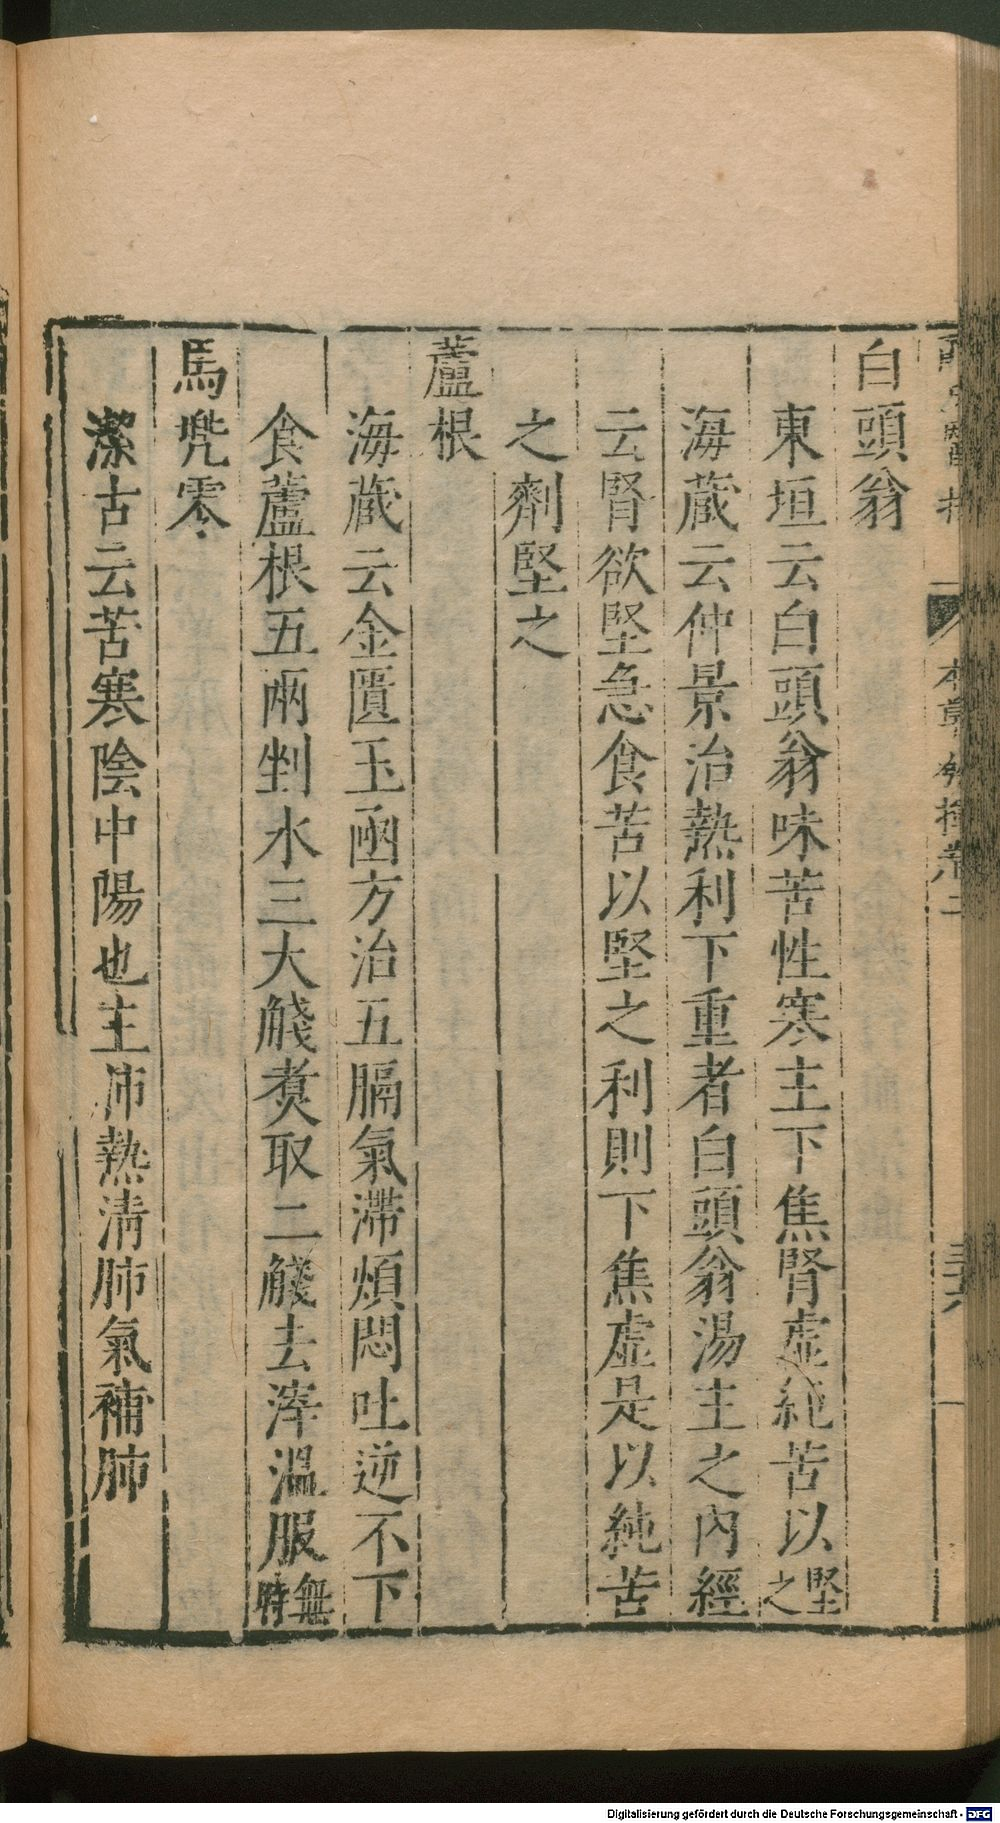 白頭翁
東垣云白頭翁味苦性寒主下焦腎虛純苦以堅之
海蔵云仲景治熱利下重者白頭翁湯主之內經
云腎欲堅急食苦以堅之利則下焦虛是以純苦
之劑堅之
蘆根
海蔵云金匱玉函方治五膈氣滯煩悶吐逆不下
食蘆根五兩剉水三大觥煑取二觥去滓溫服無時
馬兠零
潔古云苦寒陰中陽也主肺熱淸肺氣補肺
本草 卷二
三十六
Digitalisierung gefördert durch die Deutsche Forschungsgemeinschaft - DFG